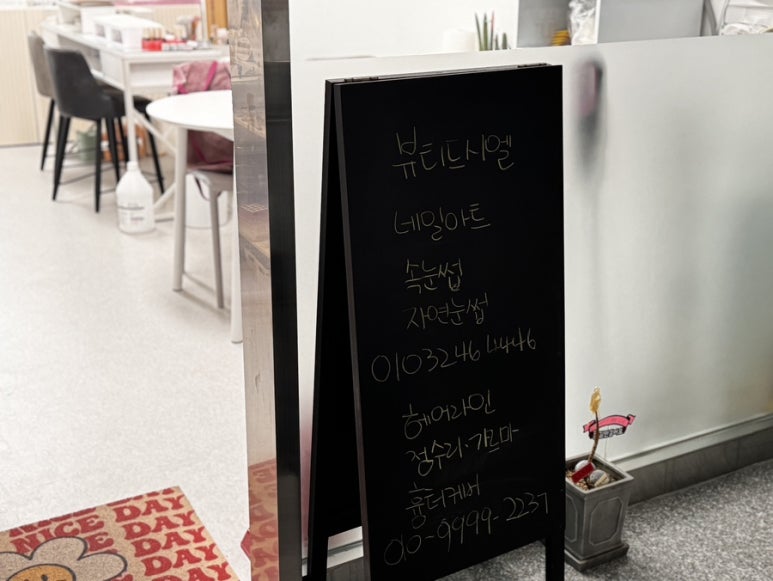 뷰티드시엘
네일아트
속눈썹
자연눈썹
010 3246 4446
헤어라인
정수리·가르마
흉터케버
010-9999-2237
NICE DAY
NICE DAY
NICE DAY
NICE DAY